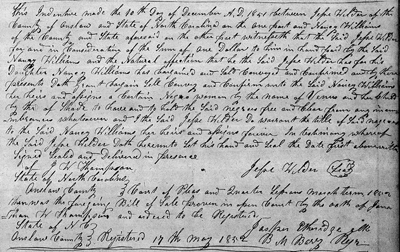 This Indenture made the 20th day of December A.D. 1851 between Jesse Wilder of the
County of Onslow and State of North Carolina on the one part and Nancy Williams
of the County and State aforesaid on the other part witnesseth that the Said Jesse Wilder
for and in Consideration of the Sum of one Dollar to him in hand paid by the Said
Nancy Williams and the Natural affection that he the Said Jesse Wilder has for his
Daughter Nancy Williams has bargained and Sold Conveyed and Confirmed and by these
presents doth Grant bargain Sell Convey and Confirm unto the Said Nancy Williams
her heirs and assigns a Certain Negro woman by the name of and her Child
by the of to have and to hold the Said Negroes free and Clear from any in
cumbrances whatsoever and I the Said Jesse Wilder Do warrant the title of Sd negroes
to the Said Nancy Williams her heirs and assigns forever In testimony whereof
the Said Jesse Wilder doth hereunto Set his hand and Seal the Date first above written
Signed Sealed and Delivered in presence
of J W Thompson Jesse Wilder Seal
State of North Carolina
Onslow County } Court of Pleas and Quarter Sessions March term 1852
then was the foregoing Bill of Sale proven in open Court by the oath of
W Thompson and ordered to be Registered
State of N C Jasper Etheridge Clk
Onslow County } Registered 17th May 1852 B M Regr